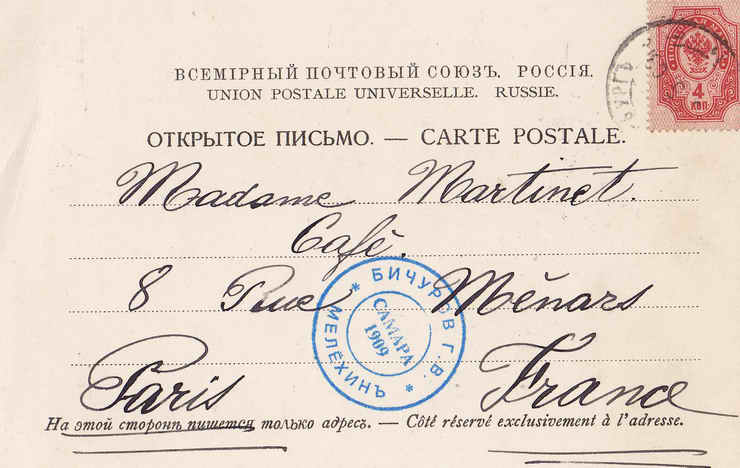 ВСЕМІРНЫЙ ПОЧТОВЫЙ СОЮЗЪ. РОССІЯ.
UNION POSTALE UNIVERSELLE. RUSSIE.
4
КОП
ОТКРЫТОЕ ПИСЬМО. — CARTE POSTALE.
Madame Martinet.
Café.
8 Rue Ménars
БИЧУРОВ Г.В.
МЕЛЕХИНЪ
САМАРА
1909
Paris France
На этой сторонѣ пишется только адресъ. — Côté réservé exclusivement à l'adresse.